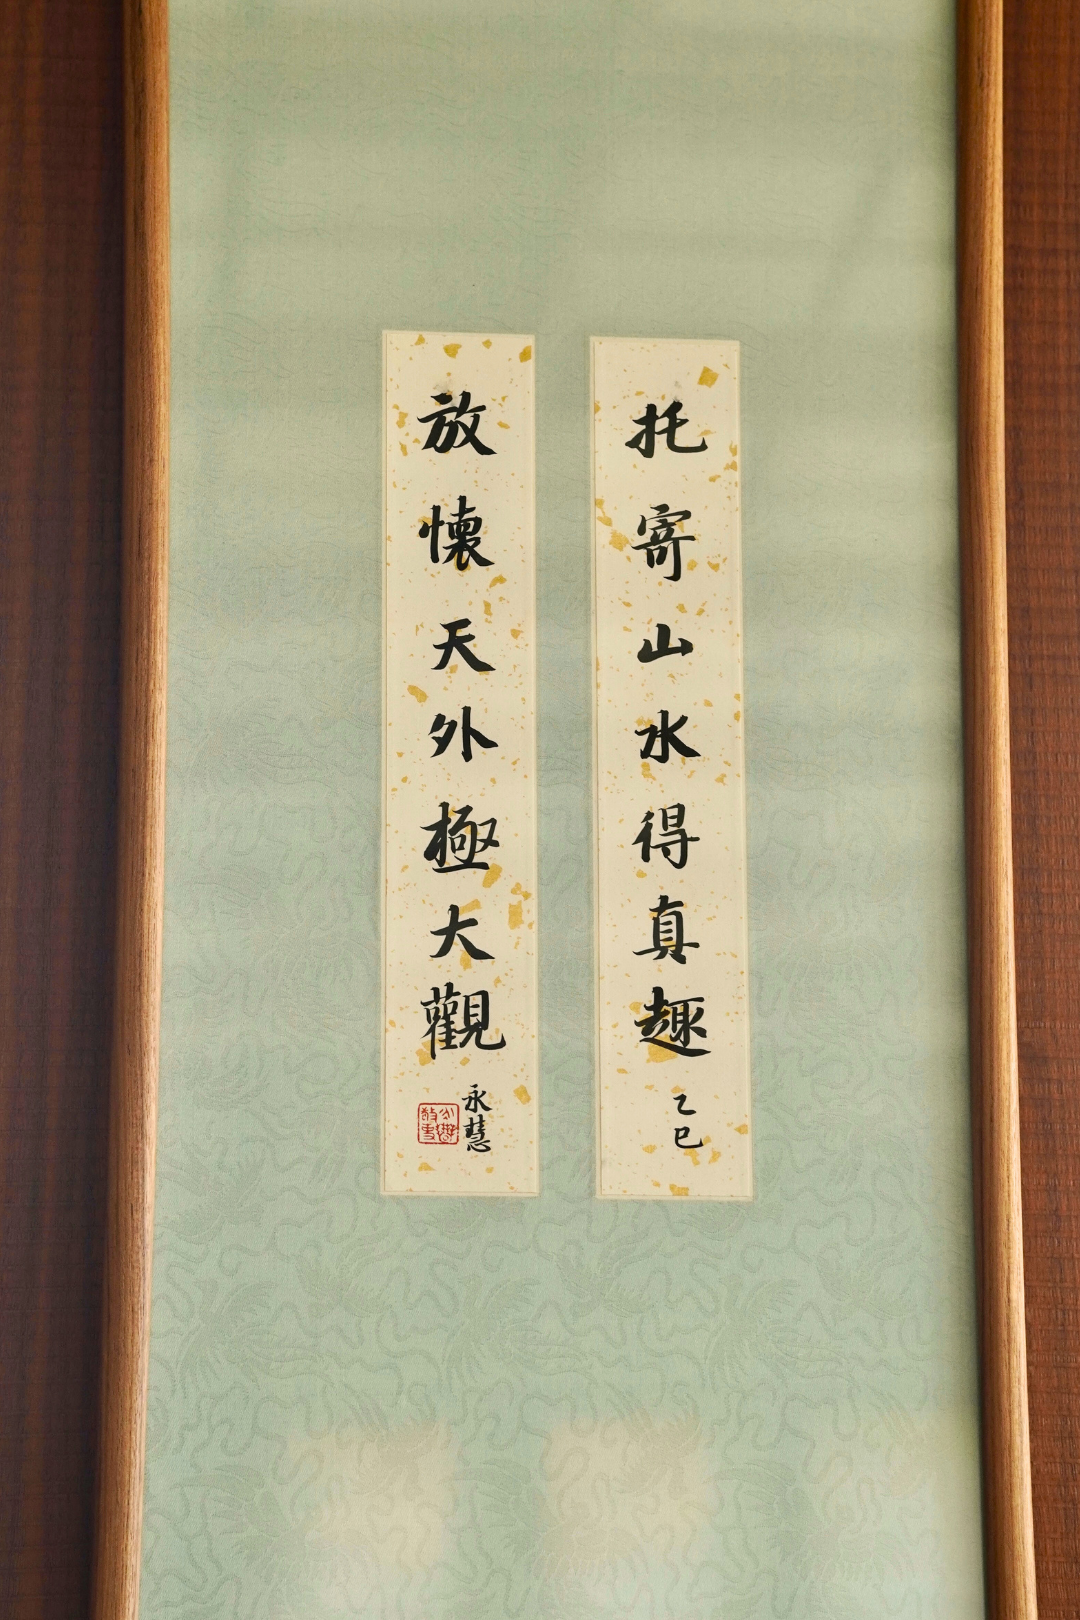 托寄山水得真趣
乙巳
放懷天外極大觀
永慧